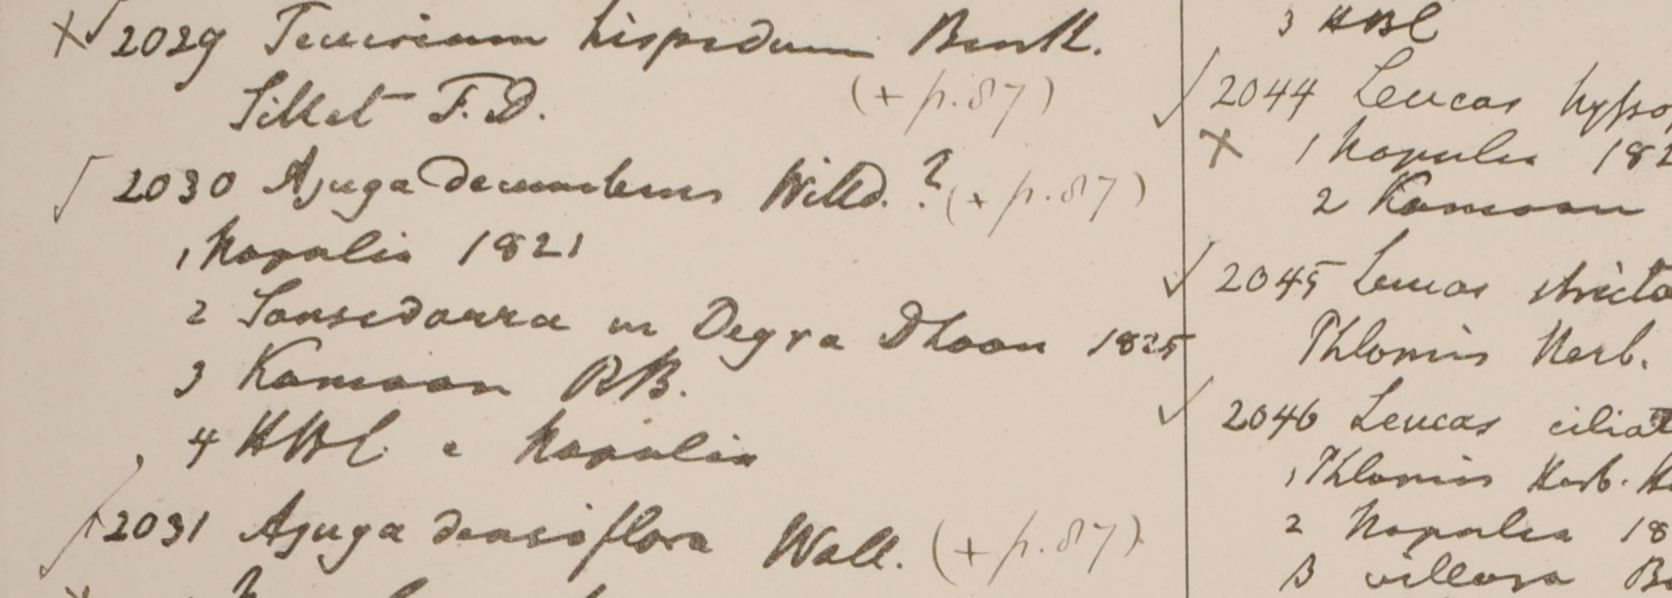 x √ 2029 Teucrium hispidum Benth.
Sillet F.D. (+ p. 87)
√ 2030 Ajuga decumbens Willd. ? (+ p. 87)
1 Napalia 1821
2 Sansedarra in Degra Dhoon 1825
3 Kamaon R.B.
4 HBC. e Napalia
√ 2031 Ajuga densiflora Wall. (+ p. 87)
3 HBC
√ 2044 Leucas hysso
x 1 Napalia 182
2 Kamaon
√ 2045 Leucas stricta
Phlomis Herb.
√ 2046 Leucas ciliat
1 Phlomis Herb. H
2 Napalia 18
β villosa B